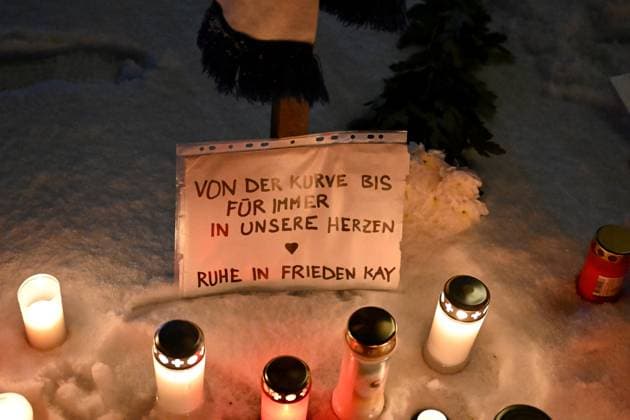 VON DER KURVE BIS
FÜR IMMER
IN UNSERE HERZEN
♥
RUHE IN FRIEDEN KAY